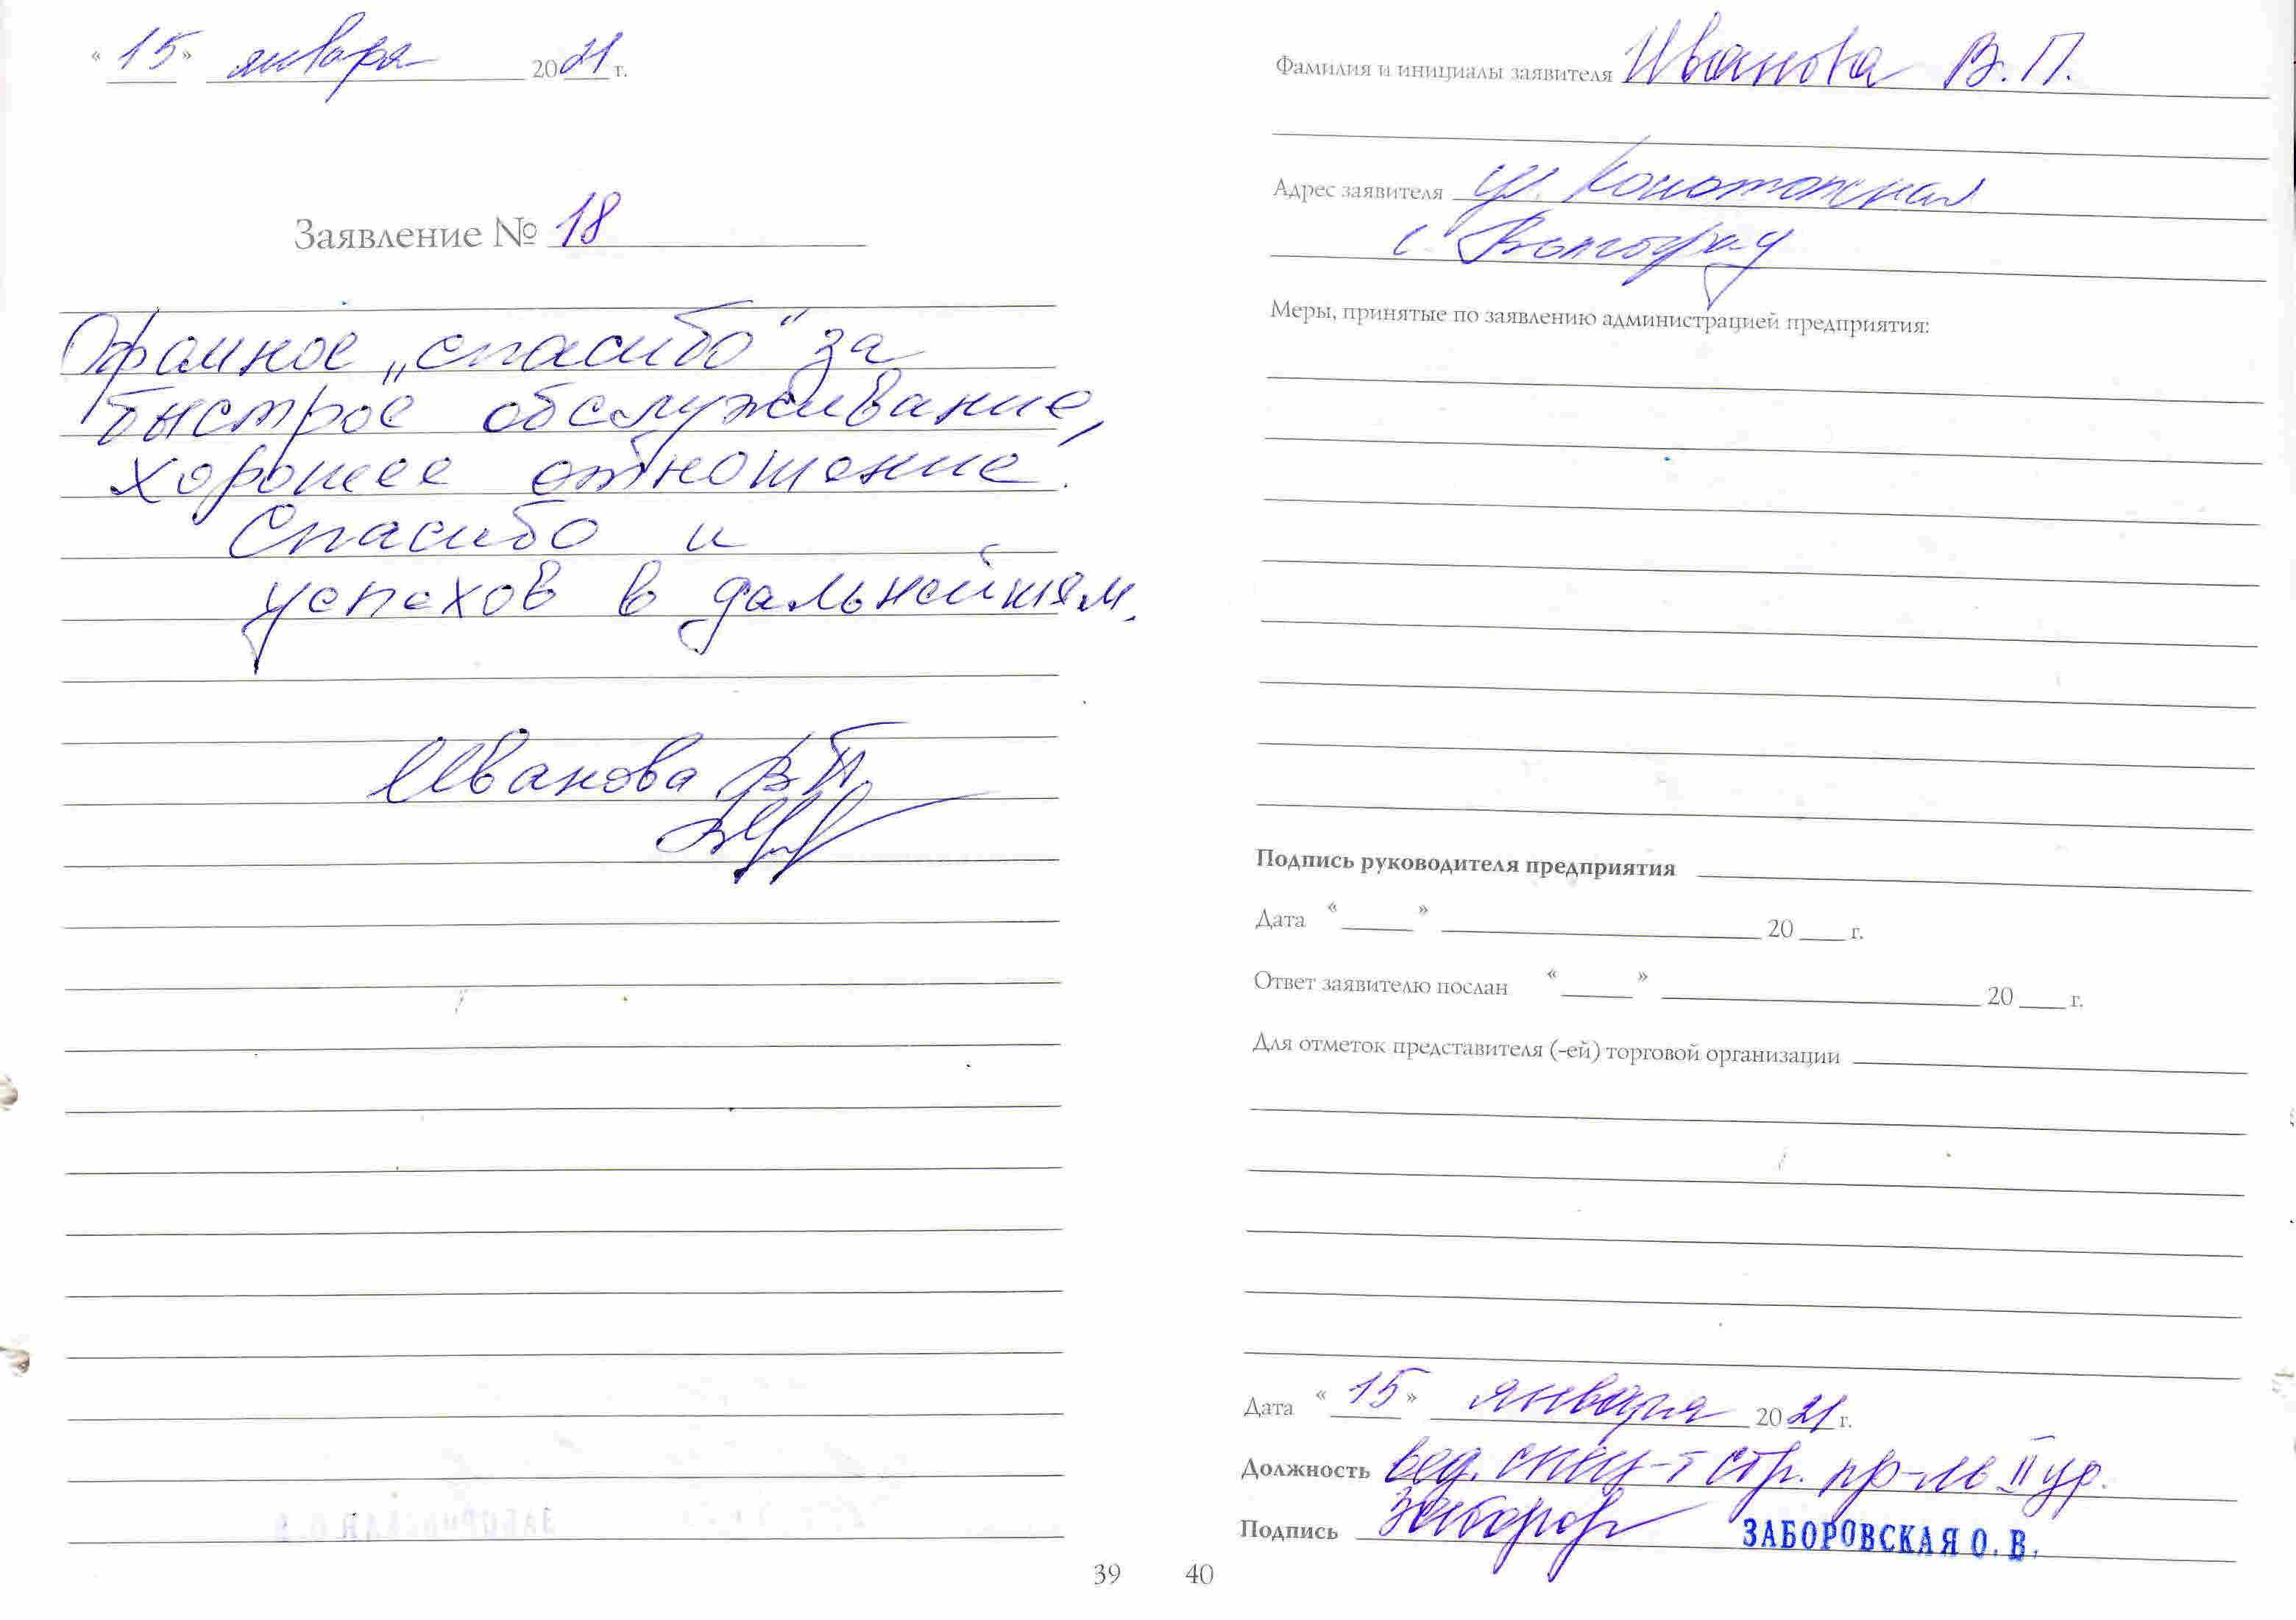 « 15 » января 2021 г.
Заявление № 18
Огромное „спасибо" за
быстрое обслуживание,
хорошее отношение.
Спасибо и
успехов в дальнейшем.
Иванова В.П.
39
Фамилия и инициалы заявителя Иванова В.П.
Адрес заявителя ул. Конотопская
г. Волгоград
Меры, принятые по заявлению администрацией предприятия:
Подпись руководителя предприятия
Дата « » 20 г.
Ответ заявителю послан « » 20 г.
Для отметок представителя (-ей) торговой организации
Дата « 15 » января 2021 г.
Должность вед. спец-т стр. пр-ль II ур.
Подпись ЗАБОРОВСКАЯ О. В.
40